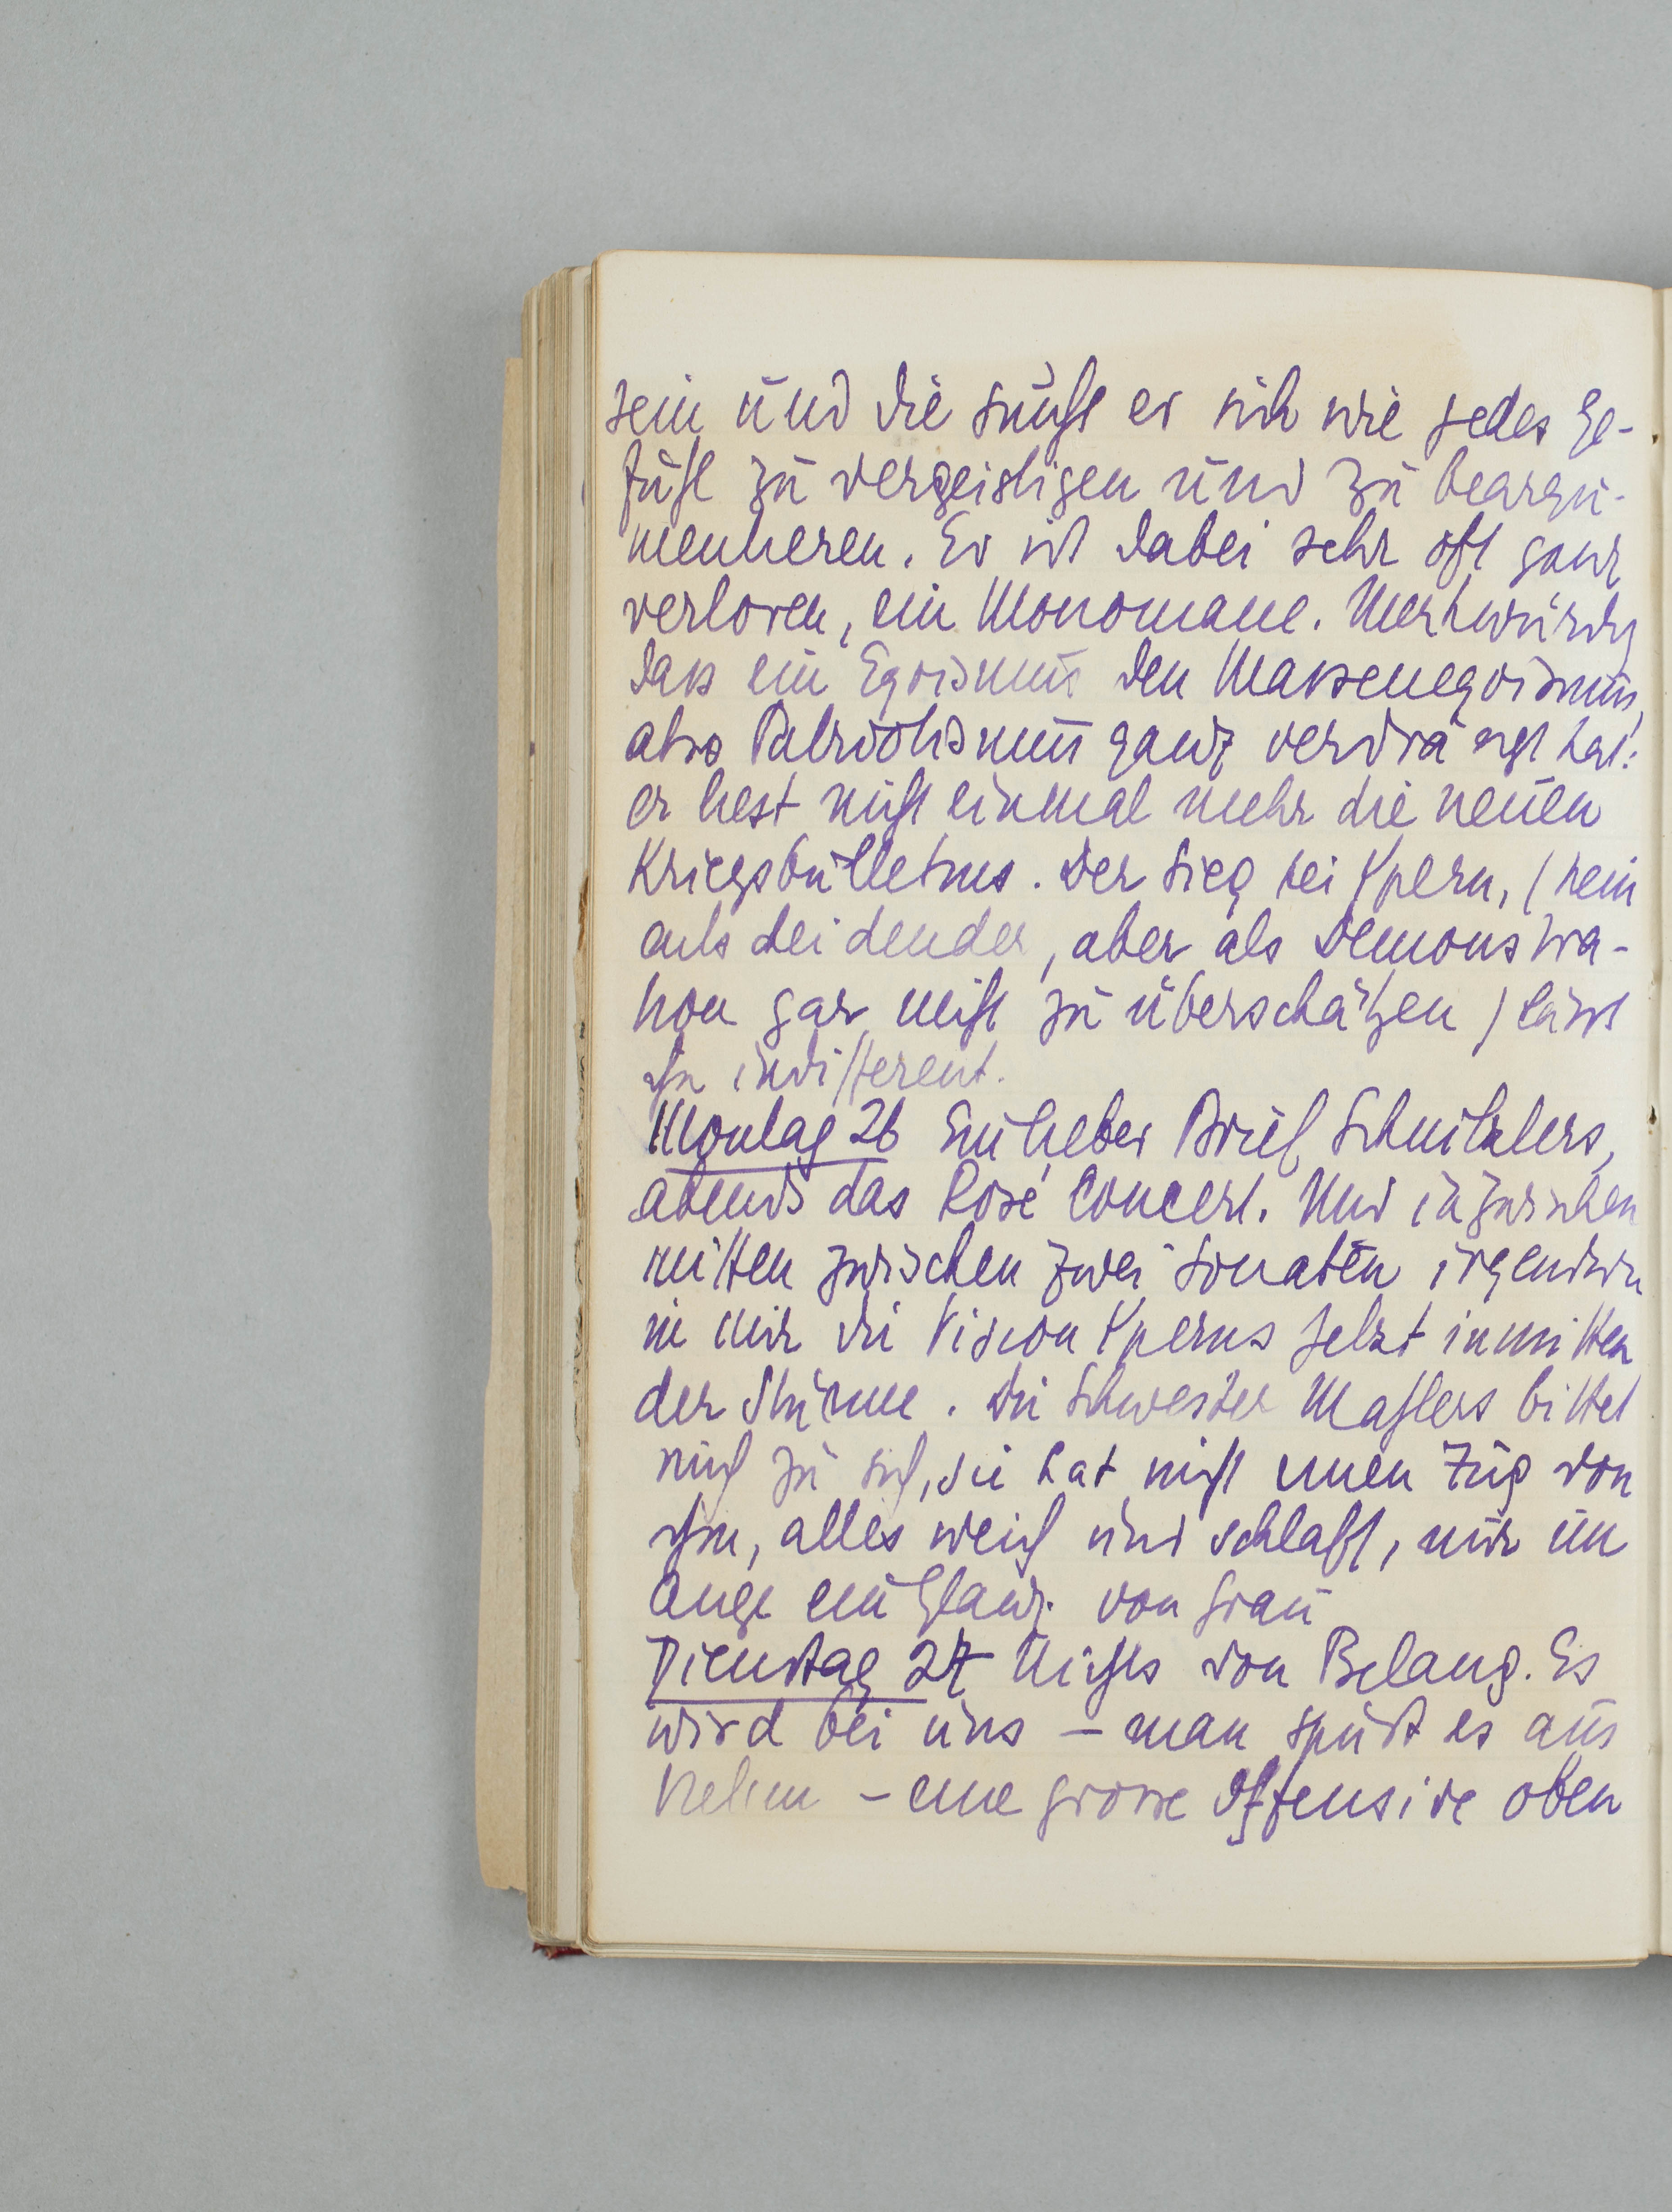 sein und die sucht er sich wie jedes Ge-
fühl zu vergeistigen und zu beargu-
mentieren. Er ist dabei sehr oft ganz
verloren, ein Monomane. Merkwürdig
dass ein Egoismus den Massenegoismus,
also Patriotismus ganz verdrängt hat:
er liest nicht einmal mehr die neuen
Kriegsbulletins. Der Sieg bei Ypern, (kein
entscheidender, aber als Demonstra-
tion gar nicht zu überschätzen) lässt
ihn indifferent.
Montag 26 Ein lieber Brief Schnitzlers,
abends das Rosé Concert. Und inzwischen
mitten zwischen zwei Sonaten irgendwie
in mir die Vision Yperns jetzt inmitten
der Stürme. Die Schwester Mahlers bittet
mich zu sich, sie hat nicht einen Zug von
ihm, alles weich und schlaff, nur im
Auge ein Glanz von Grau
Dienstag 27 Nichts von Belang. Es
wird bei uns – man spürt es aus
 – eine grosse Offensive oben